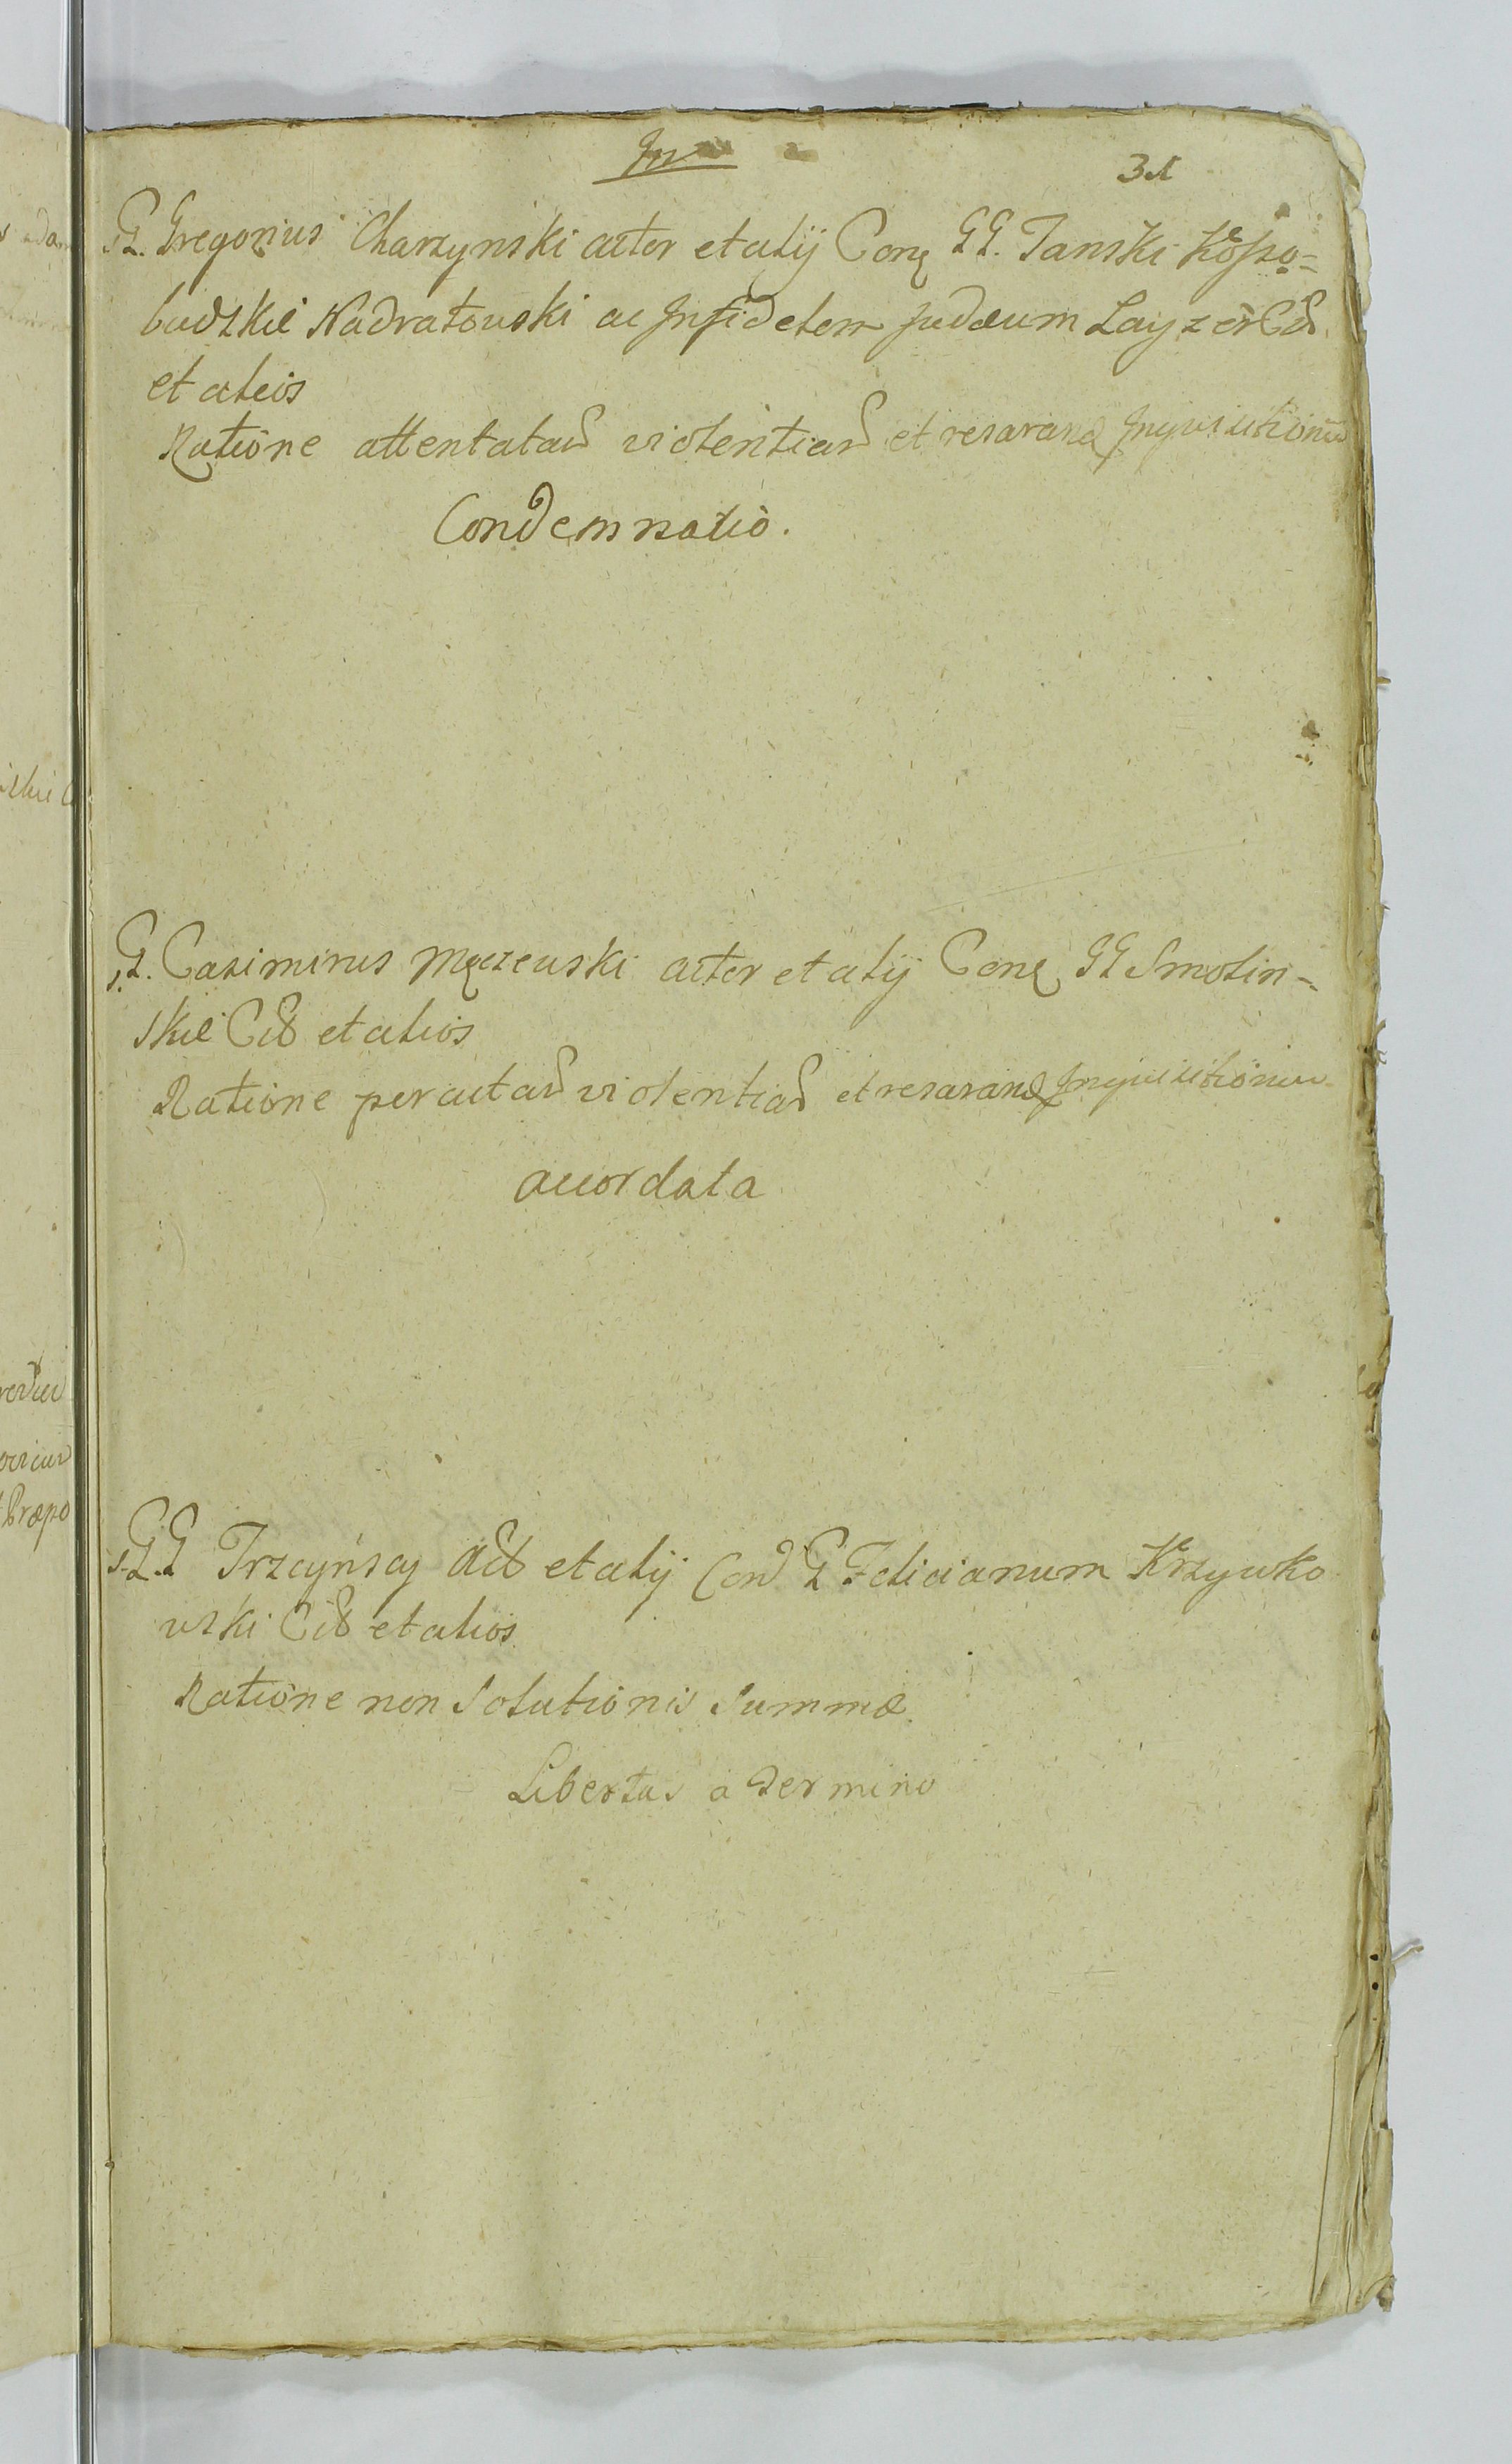 31
G. Gregorius Charzynski actor et alij Con GG. Tanski Kosso=
budzkie Nadratowski ac Infidelem Judæum Layzer Cit
et alios
Ratione attentatar violentiar et reserand Inquisitionu
Condemnatio.
G. Casimirus Mączewski actor et alij Con GG Smolin=
skie Cit et alios
Ratione peractar violentiar et reserand Inquisitionu
accordata
GG Trzcyńscy Act et alij Con G Felicianum Krzywko
wski Cit et alios
Ratione non Solutionis Summæ
Libertas a Termino